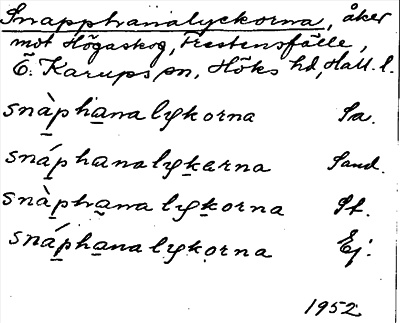 Snapphanalyckorna, åker
mot Högaskog, Frestensfälle,
Ö. Karups sn, Höks hd, Hall. l.
snàphana lykorna Sa.
snáphana lykarna Sand.
snàphana lykorna St.
snáphana lykorna Ej.
1952